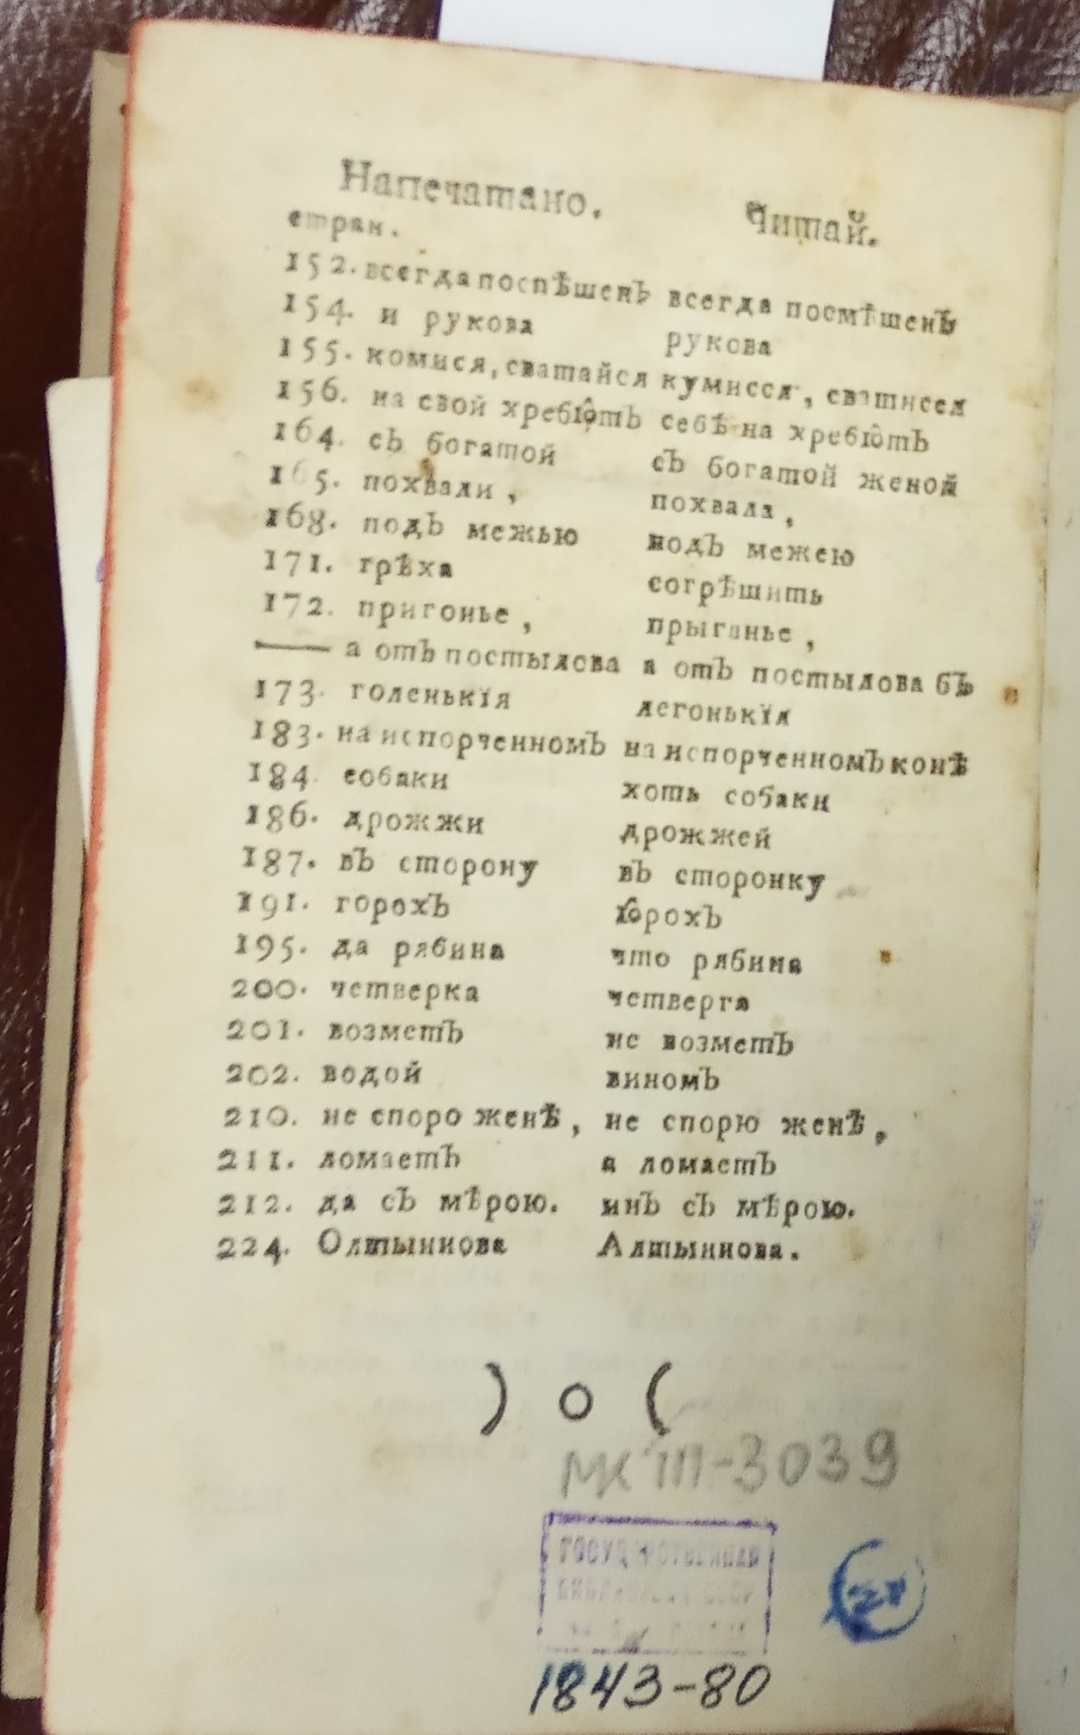 Напечатано. Читай.
стран.
152. всегда поспѣшенъ всегда посмѣшенъ
154. и рукова рукова
155. комися, сватайся кумисся, сватисся
156. на свой хребіо̂тъ себѣ на хребіо̂тъ
164. съ богатой съ богатой женой
165. похвали, похвала,
168. подъ межью подъ межею
171. грѣха согрѣшить
172. пригонье, прыганье,
—— а отъ постылова а отъ постылова бъ
173. голенькія легонькія
183. на испорченномъ на испорченномъ конѣ
184. собаки хоть собаки
186. дрожжи дрожжей
187. въ сторону въ сторонку
191. горохъ
195. да рябина что рябина
200. четверка четверга
201. возметъ не возметъ
202. водой виномъ
210. не споро женѣ, не спорю женѣ,
211. ломаетъ а ломаетъ
212. да съ мѣрою. инъ съ мѣрою.
224. Олтыннова Алтыннова.
) o (
МК III-3039
1843-80